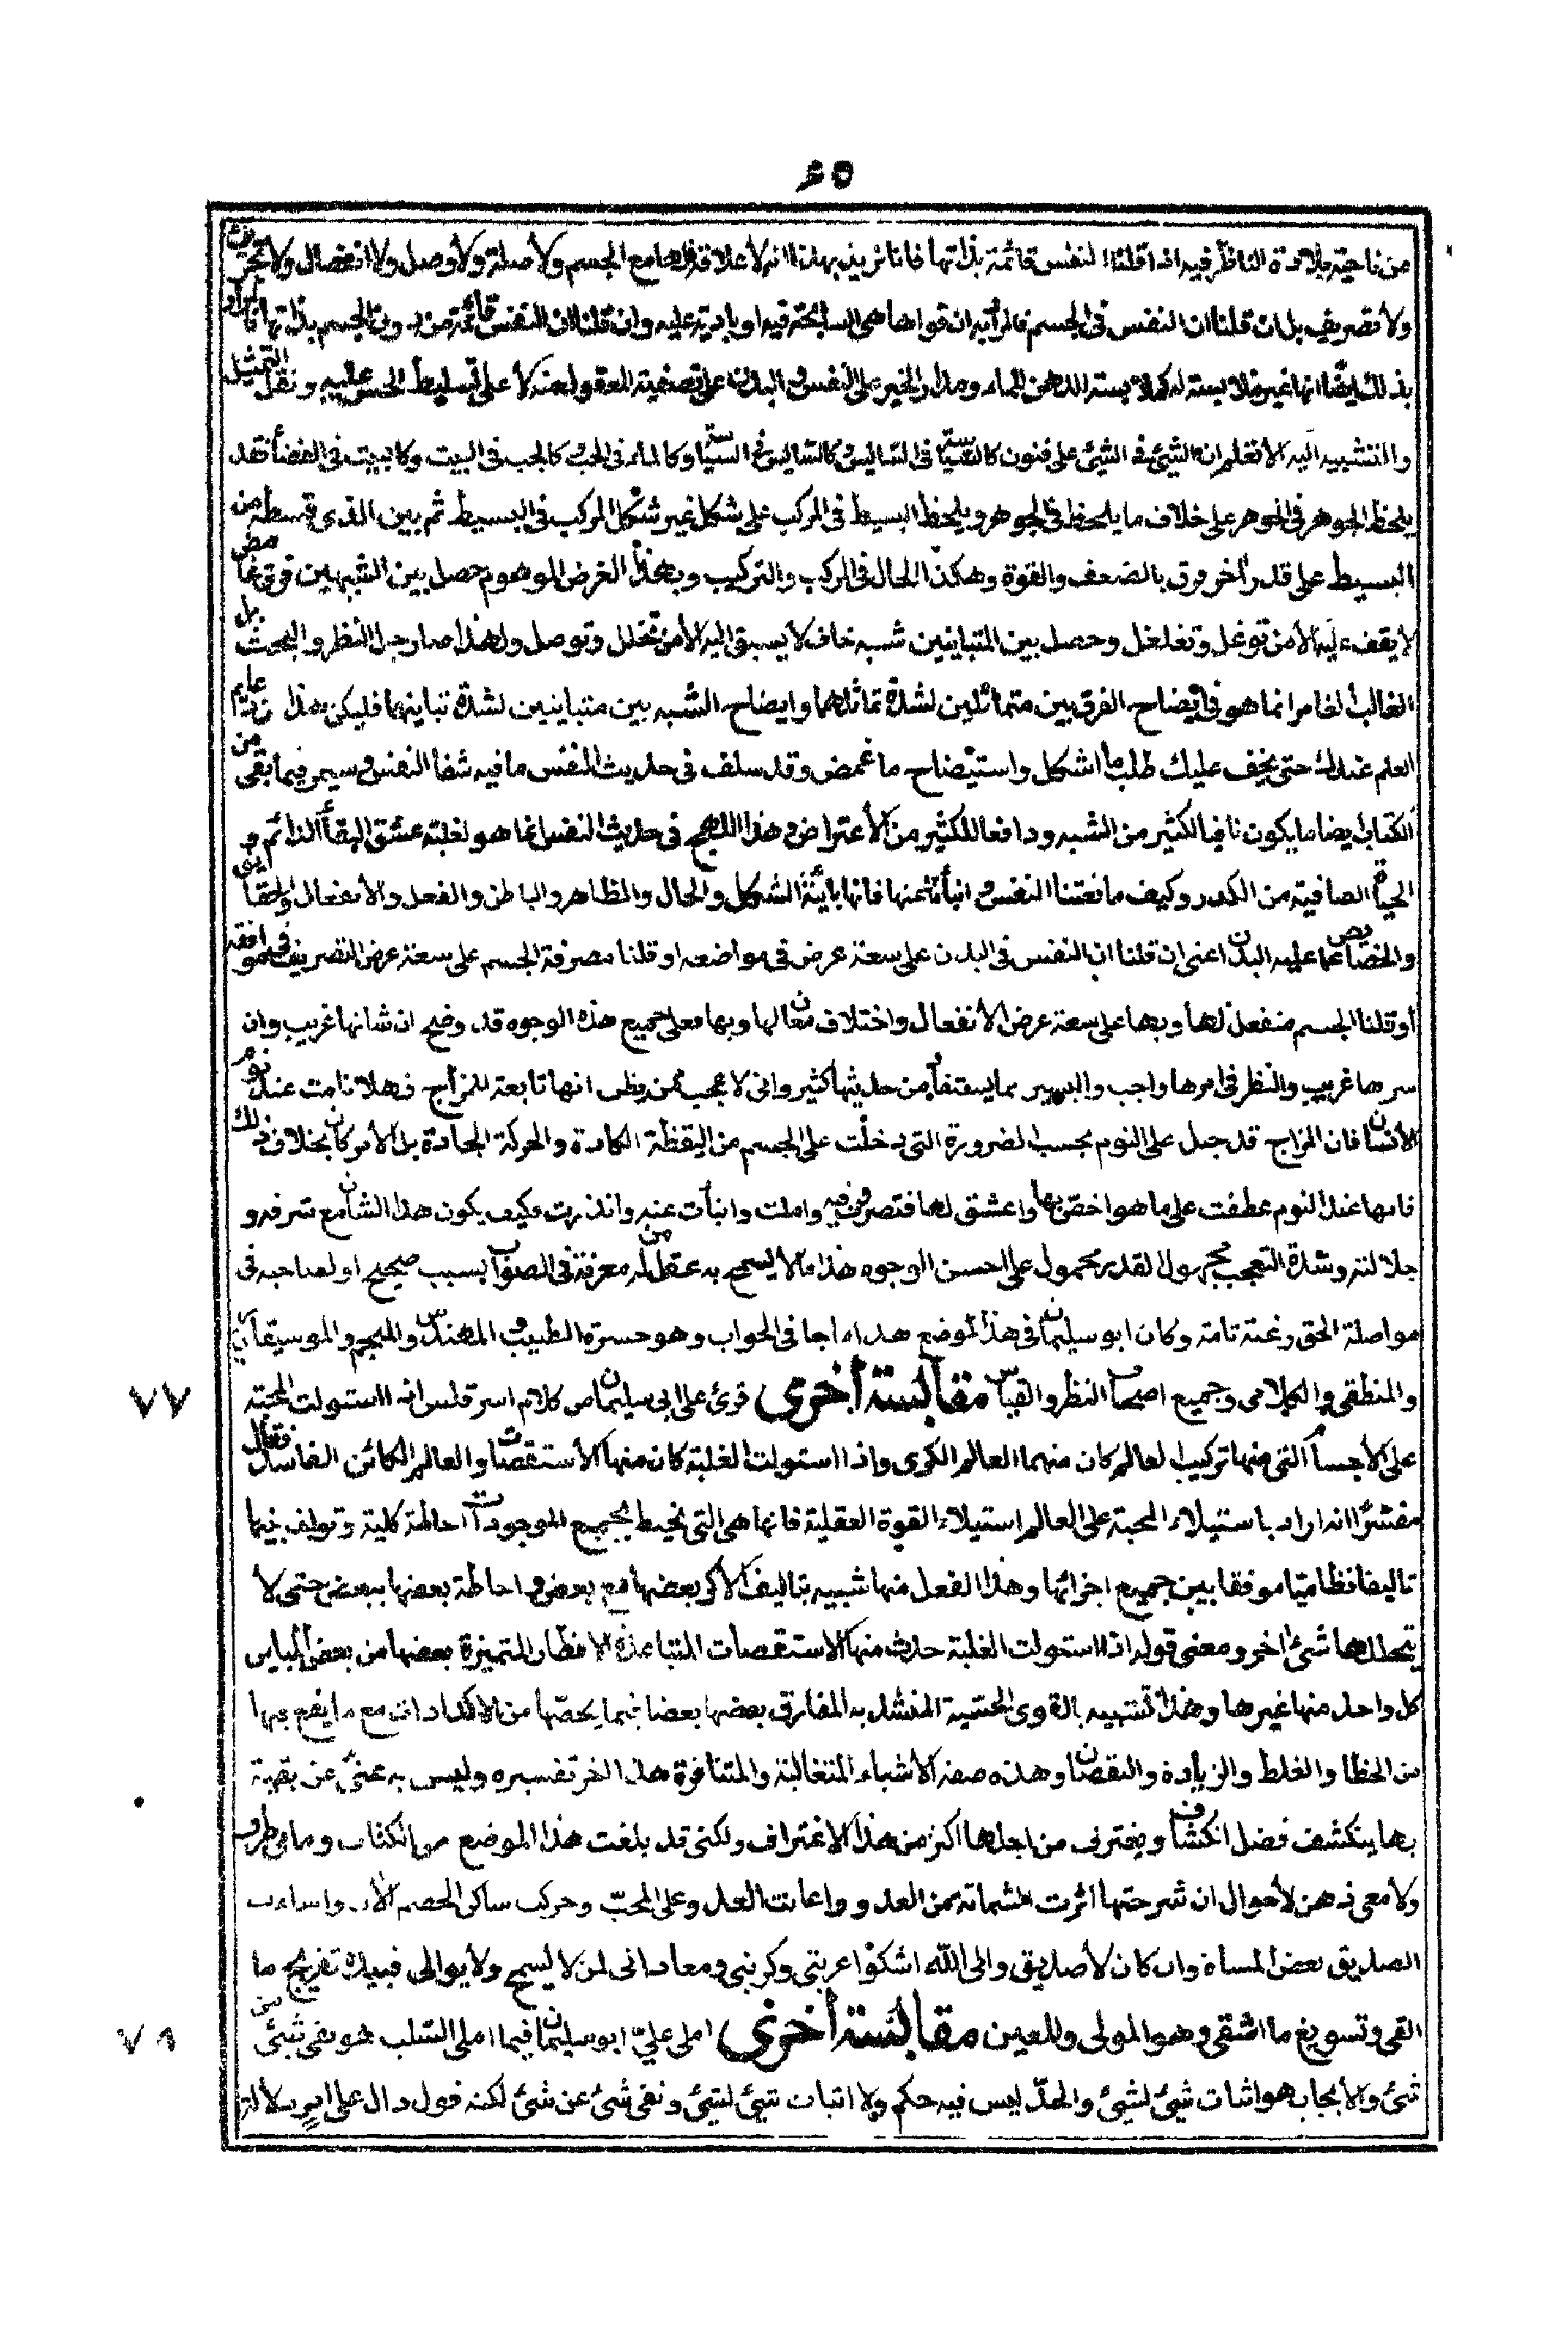 ٤٥
من ناحيته بلا مدة الناظر فيه اذا قلنا النفس قائمة بذاتها فانا نريد بهذا انه لا علاقة لها مع الجسم ولا صلة ولا وصل ولا انفصال ولا
ولا تصريف بل ان قلنا ان النفس في الجسم فالمراد ان قواها هي السابحة فيه او بادية عليه وان قلنا ان النفس قائمة من دون الجسم بذاتها
بذلك ايضا انها غير ملابسته له كملابسته الدهن للماء ومدار الخبر على النفس والبدن على تصفية المعقول عنه لا على تسليط الحس عليه ونقل التمثيل
والتشبيه اليه الا تعلم ان الشيء في الشيء على فنون وكالماء في الجب كالجب في البيت وكالبيت في الفضأ فقد
يلحظ الجوهر في الجوهر على خلاف ما يلحظ في الجوهر ويلحظ البسيط في المركب على شكل غير شكل المركب في البسيط ثم بين الذي قسطه من
البسيط على قدر أخر فرق بالضعف والقوة وهكذا الحال في المركب والتركيب وبهذا الغرض الموهوم حصل بين الشبهين فرق غامض
لا يقف عليه الا من توغل وتغلغل وحصل بين المتباينين شبه خاف لا يسبق اليه الا من تخلل وتوصل ولهذا صار جل النظر والبحث بل
الغالب الغامر انما هو في ايضاح الفرق بين متماثلين لشدة تماثلهما وايضاح الشبه بين متباينين لشدة تباينهما فليكن هذا
العلم عندك حتى يخف عليك طلب ما اشكل واستيضاح ما غمض وقد سلف في حديث النفس ما فيه شفا النفس وسيمر فيما بقي من
الكتاب ايضا ما يكون نافيا لكثير من الشبه ودافعا للكثير من الأعتراض وهذا اللهج في حديث النفس انما هو لغلبة عشق البقأ الدائم و
الحيٰوة الصافية من الكدر وكيف ما نعتنا النفس وانبأنا عنها فانها بائنة الشكل والحال والمظاهر والباطن والفعل والأنفعال
والخصائص عما عليه البدن اعني ان قلنا ان النفس في البدن على سعة عرض في مواضعه او قلنا مصرفة الجسم على سعة عرض التصريف في مواقعه
او قلنا الجسم منفعل لها وبها على سعة عرض الأنفعال واختلاف لها وبها معلى جميع هذه الوجوه قد وضح ان شانها غريب وان
سرها غريب والنظر في امرها واجب واليسير بما يستفاد من حديثها كثير واني لا عجب ممن يظن انها تابعة للمزاج فهلا نامت عند نوم
الأنسان فان المزاج قد جبل على النوم بحسب الضرورة التي دخلت على الجسم من اليقظة الكادة والحركة الجادة بل الأمر كان بخلاف ذلك
فانها عند النوم عطفت على ما هو اخص بها واعشق لها فتصرفت فيه واملت وانبأت عنه وانذرت وكيف يكون هذا الشأن مع شرفه و
جلالته وشدة التعجب مجهول القدر محمول على احسن الوجوه هذا ما لا يسمح به عقل من له معرفة في الصواب بسبب صحيح او لصاحبه في
مواصلة الحق رغبة تامة وكان ابو سليمان في هذا الموضع الجواب وهو حسرة الطبيب والمهندس والمنجم والموسيقار
والمنطقي والكلامي وجميع اصحاب النظر والقياس مقابسة أخرى قرئ على ابي سليمان من كلام انه اذا استولت المحبة
٧٧
على الأجسام التي منها تركيب العالم كان منهما العالم الكري واذا استولت الغلبة كان منها الأستقصات والعالم الكائن الفاسد فقال
مفسرا انه اراد باستيلاء المحبة على العالم استيلاء القوة العقلية فانها هي التي تحيط بجميع الموجودات احاطة كلية وتولف بينها
تاليفا نظاميا موفقا بين جميع اجزائها وهذا الفعل منها شبيه بتاليف الأكر بعضها مع بعض واحاطة بعضها ببعض حتى لا
يتخللها شئ أخر ومعنى قوله اذا استولت الغلبة حدث منها الاستقصات المتباعدة الاقطار المتميزة بعضها من بعض المباين
كل واحد منها غيرها وهذا تشبيه بالقوى الحسية به المفارق بعضها بعضا فيما يخصها من الادراكات مع ما يقع فيها
من الخطا والغلط والزيادة والنقصان وهذه صفة الأشياء المتغالبة والمتنافرة هذا اخر تفسيره وليس به غنى عن بقية
بها ينكشف فضل انكشاف ويعترف من اجلها اكثر من هذا الاعتراف ولكني قد بلغت هذا الموضع من الكتاب وما
ولا معي ذهن لأحوال ان شرحتها اثرت الشماتة من العدو واعانت العدو على المحب وحركت ساكن الخصم واساءت
الصديق بعض المساة وان كان لا صديق والى الله اشكوا غربتي وكربتي ومعاداتي لمن لا يسمح ولا يوالي فبيده تفريج ما
القي وتسويغ ما اشقى وهو المولى والمعين مقابسة أخرى املى عليّ ابو سليمان فيما املى السلب هو نفي شئ من
٧٨
شئ والأيجاب هو اثبات شئ لشئ والحدّ ليس فيه حكم ولا اثبات شئ لشئ ونفي شئ عن شئ لكنه قول دال على